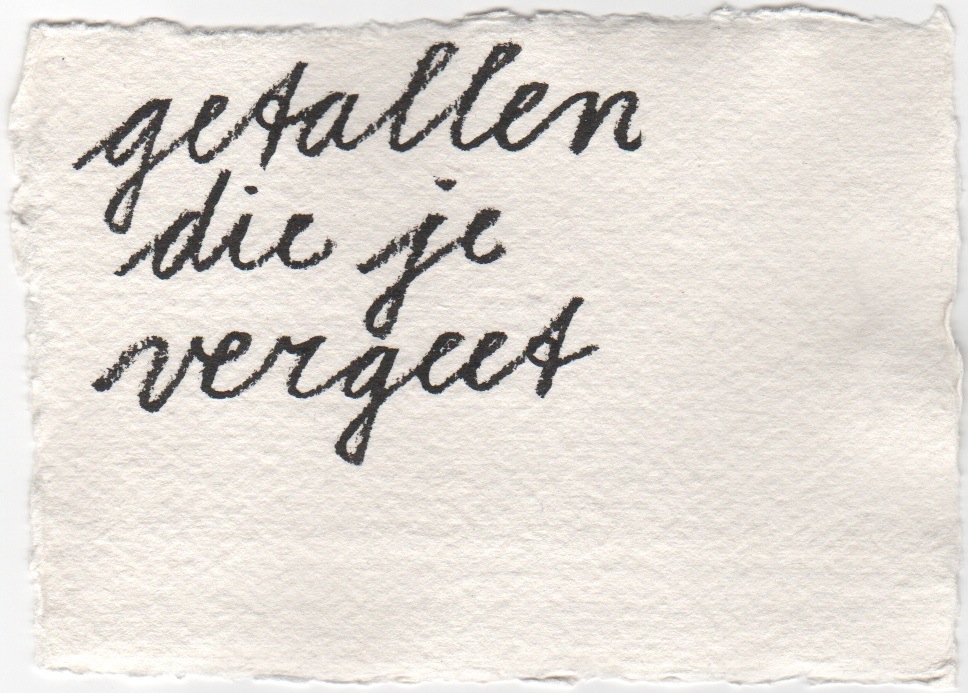 getallen
die je
vergeet